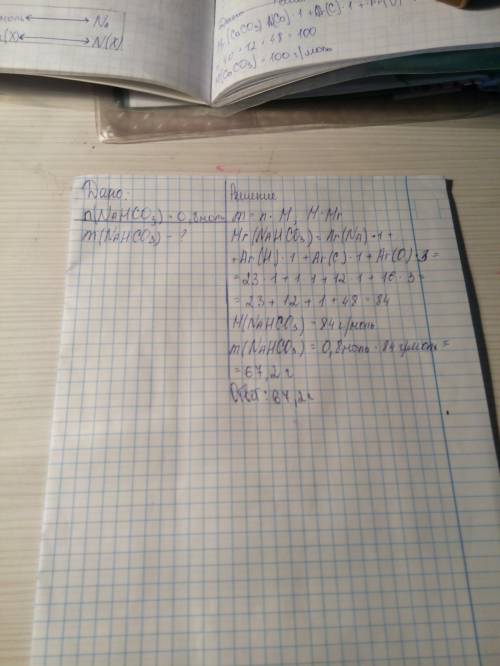 моль N₀
n(X) N(X)
Mr(CaCO₃)
40 + 12 + 48 = 100
M(CaCO₃) = 100 г/моль
Дано:
n(NaHCO₃) = 0,8моль
m(NaHCO₃) - ?
Решение
m = n · M, M = Mr
Mr(NaHCO₃) = Ar(Na) · 1 +
+ Ar(H) · 1 + Ar(C) · 1 + Ar(O) · 3 =
= 23 · 1 + 1 · 1 + 12 · 1 + 16 · 3 =
= 23 + 12 + 1 + 48 = 84
M(NaHCO₃) = 84 г/моль
m(NaHCO₃) = 0,8моль · 84 г/моль =
= 67,2 г
Ответ: 67,2 г